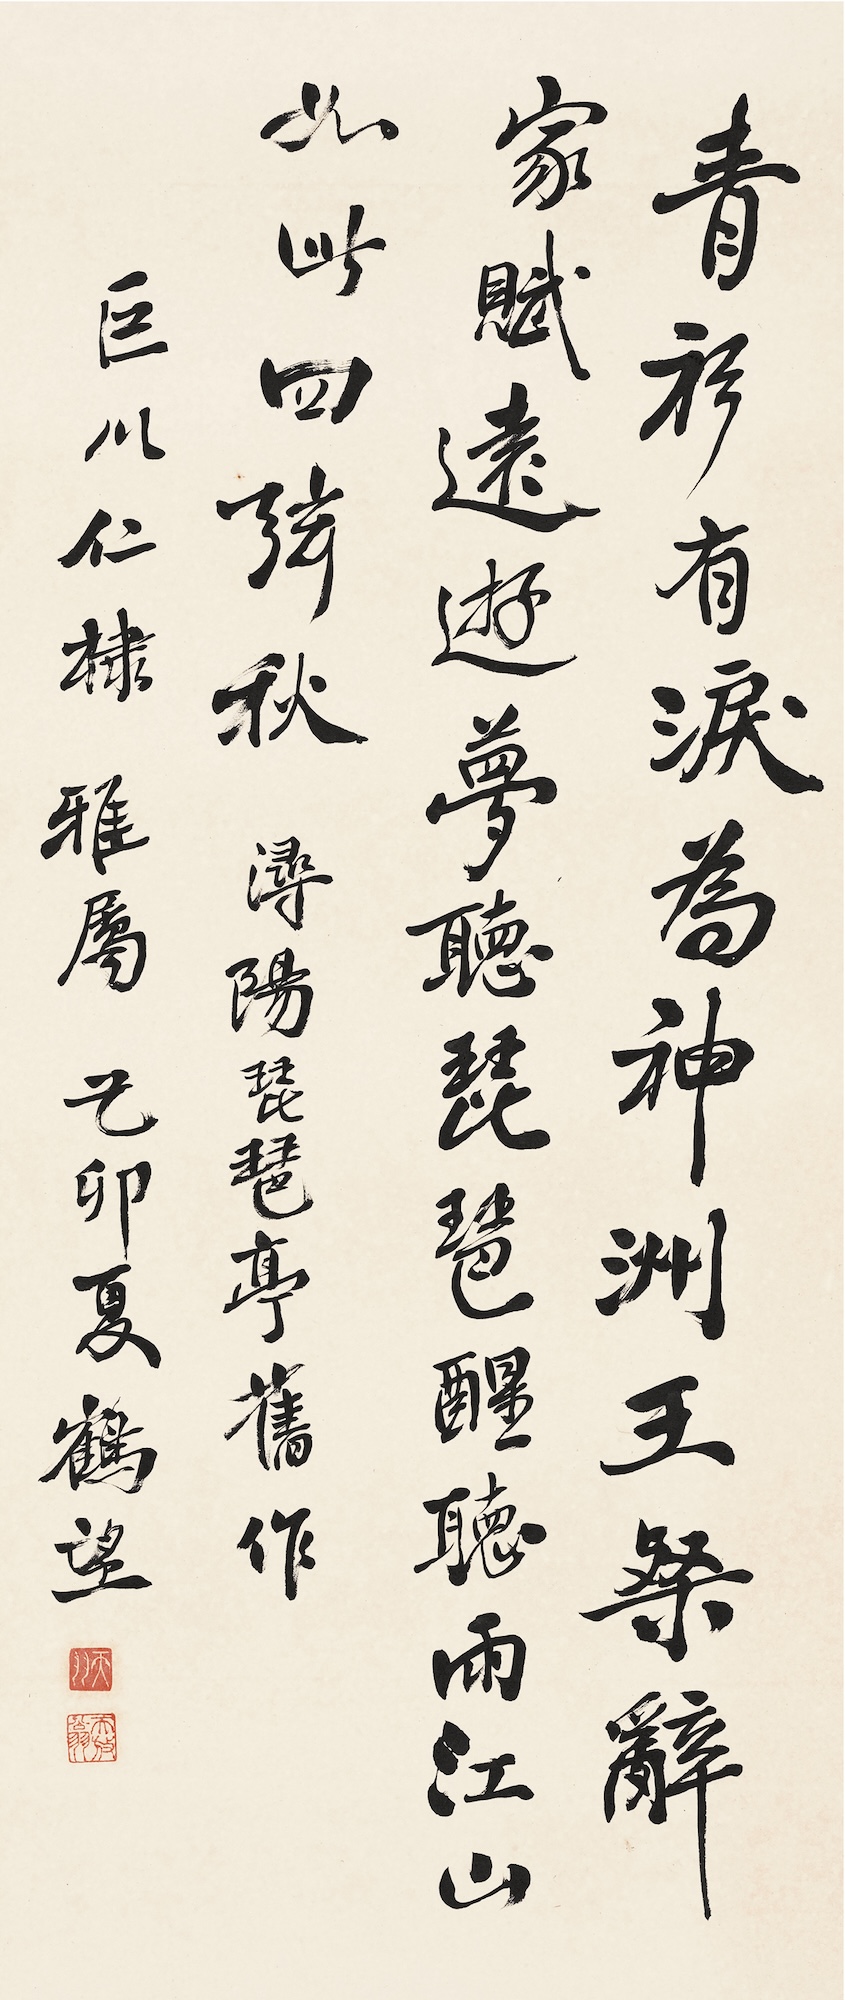 青衫有淚為神洲王粲辭
家賦遠遊夢聽琵琶醒聽雨江山
如此四弦秋 潯陽琵琶亭舊作
巨川仁棣 雅屬 己卯夏鶴望
天放